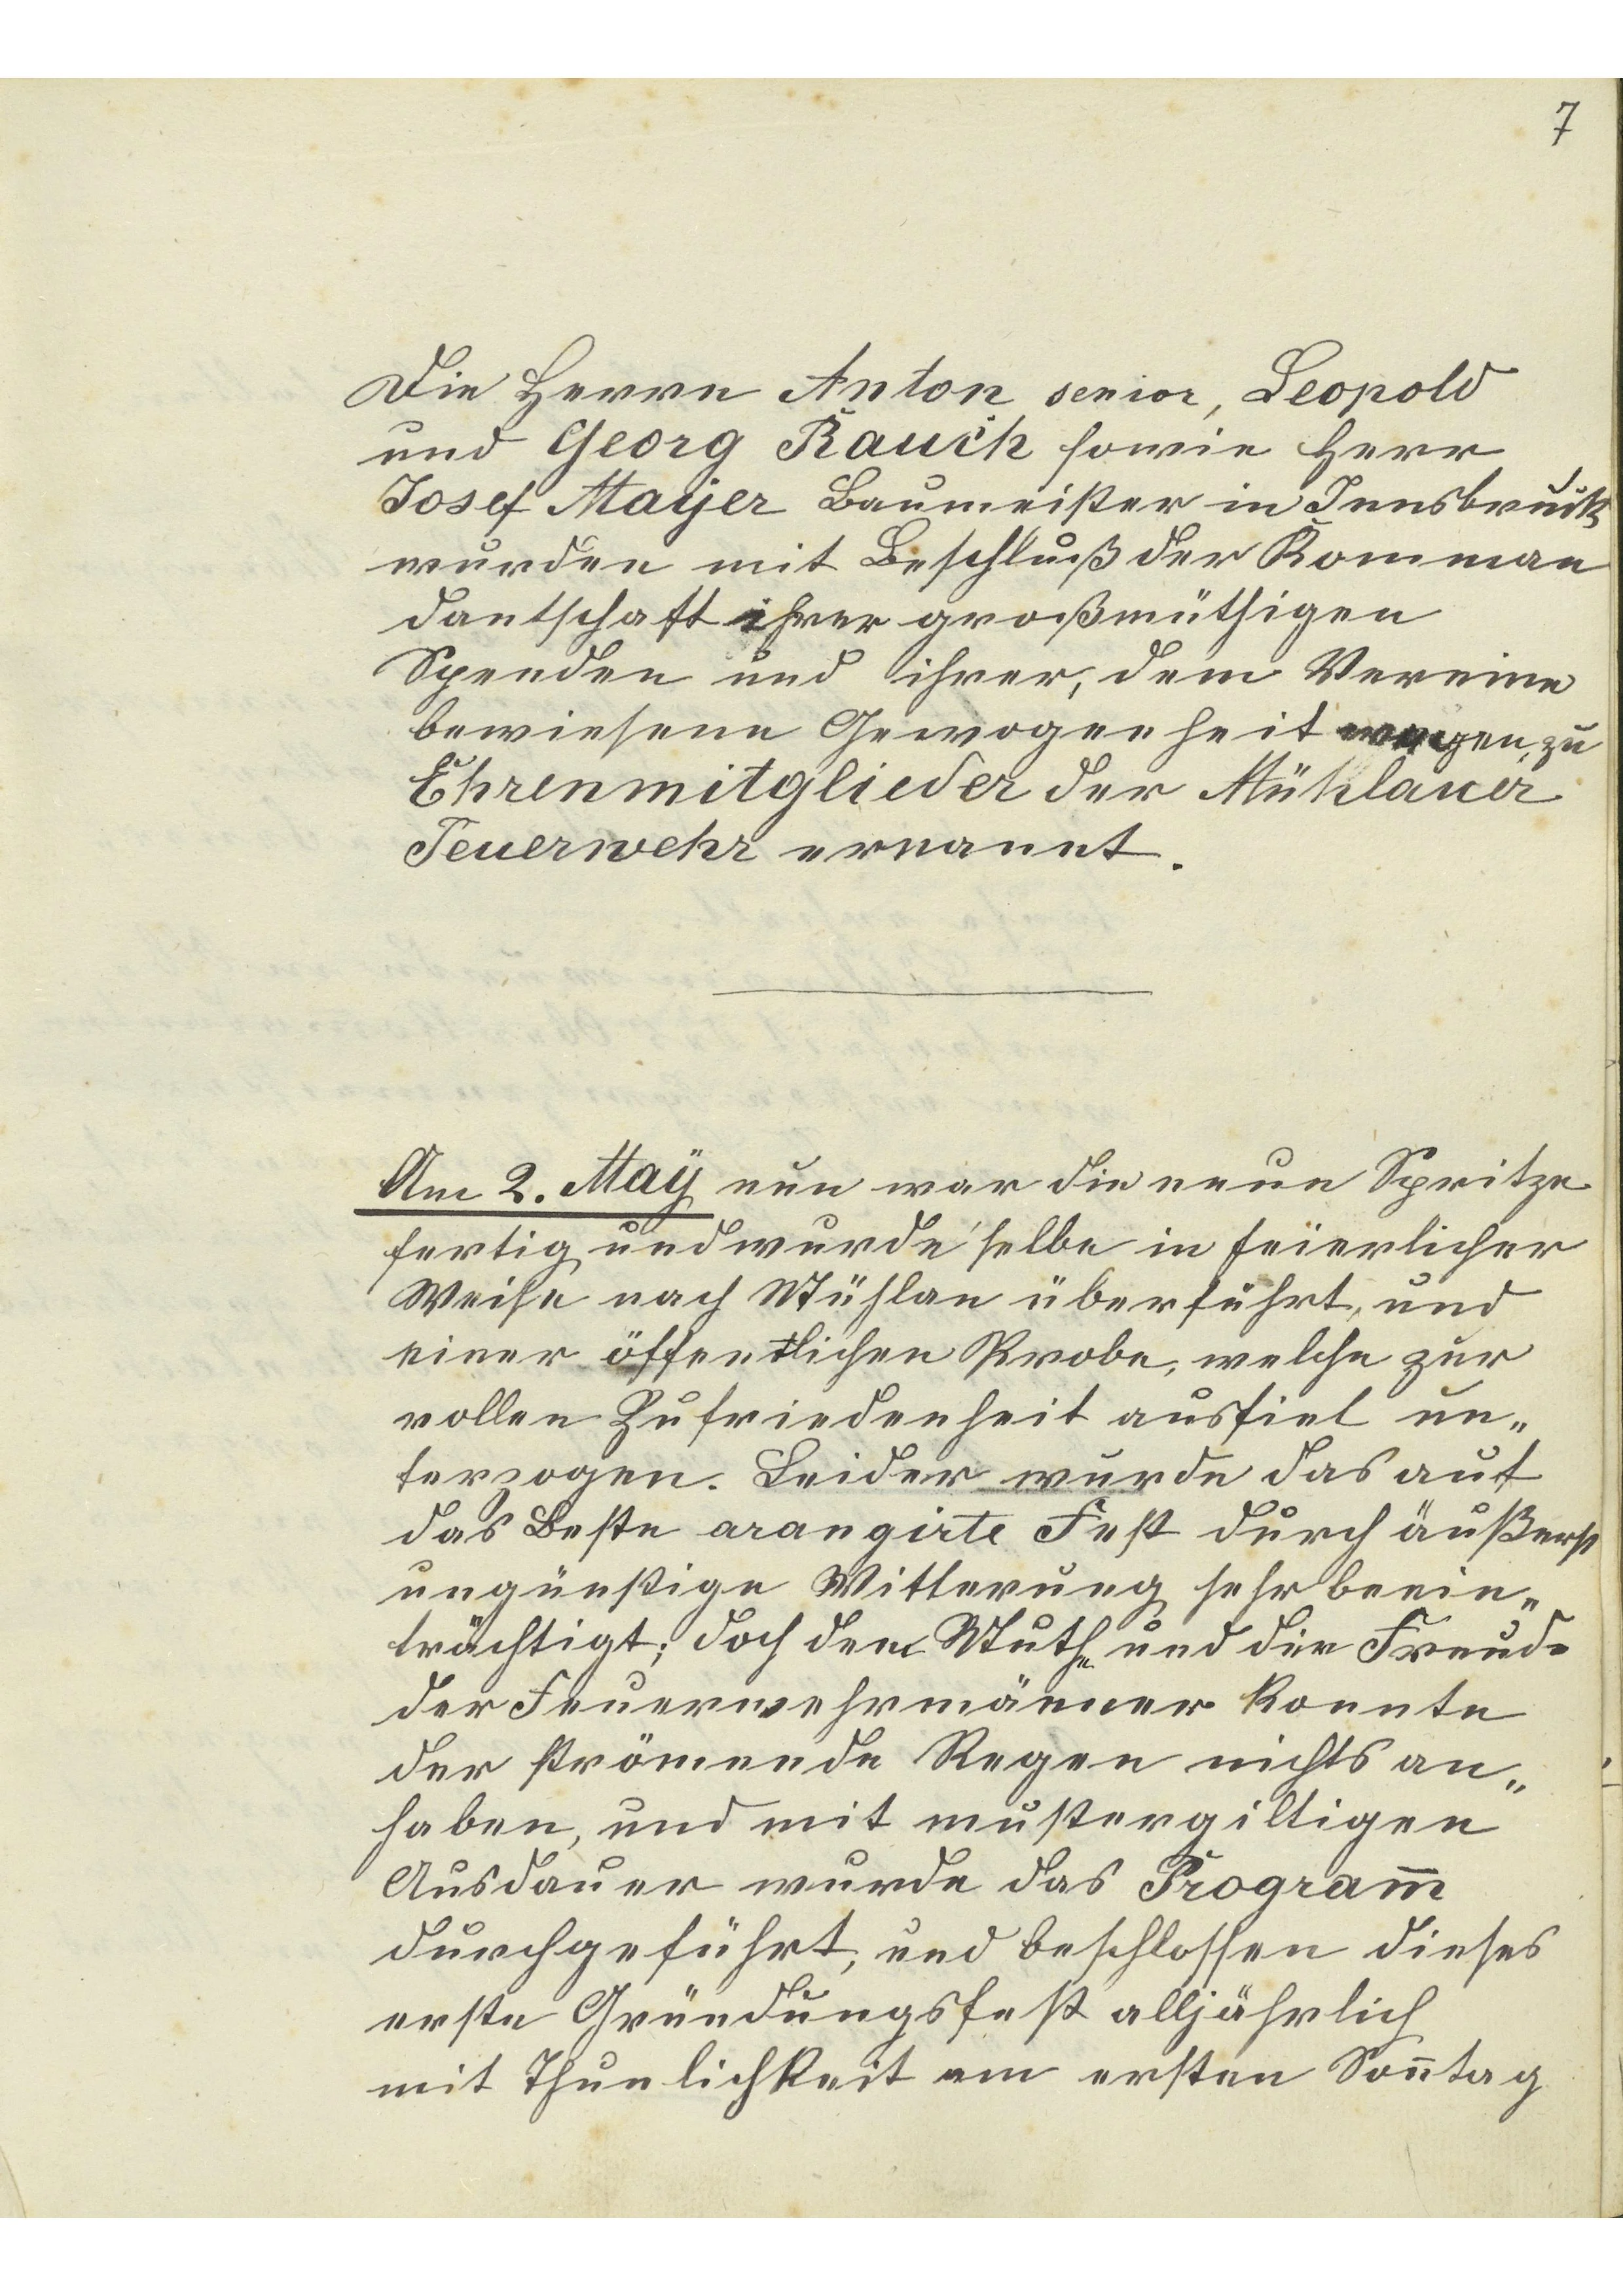 7
Die Herrn Anton senior, Leopold
und Georg Rauch sowie Herr
Josef Mayer Baumeister in Innsbruck
wurden mit Beschluß der Komman
dantschaft ihrer großmüthigen
Spenden und ihrer, dem Vereine
bewiesene Gewogenheit wegen, zu
Ehrenmitglieder der Mühlauer
Feuerwehr ernannt.
Am 2. Maÿ nun war die neue Spritze
fertig und wurde selbe in feierlicher
Weise nach Mühlau überführt, und
einer öffentlichen Probe, welche zur
vollen Zufriedenheit ausfiel un„
terzogen. Leider wurde das auf
das Beste arangirte Fest durch äußerst
ungünstige Witterung sehr beein„
trächtigt; doch dem Muthe und der Freude
der Feuerwehrmänner konnte
der strömende Regen nichts an„
haben, und mit mustergiltigen
Ausdauer wurde das Program̅
durchgeführt, und beschlossen dieses
erste Gründungsfest alljährlich
mit Thunlichkeit am ersten Son̅tag